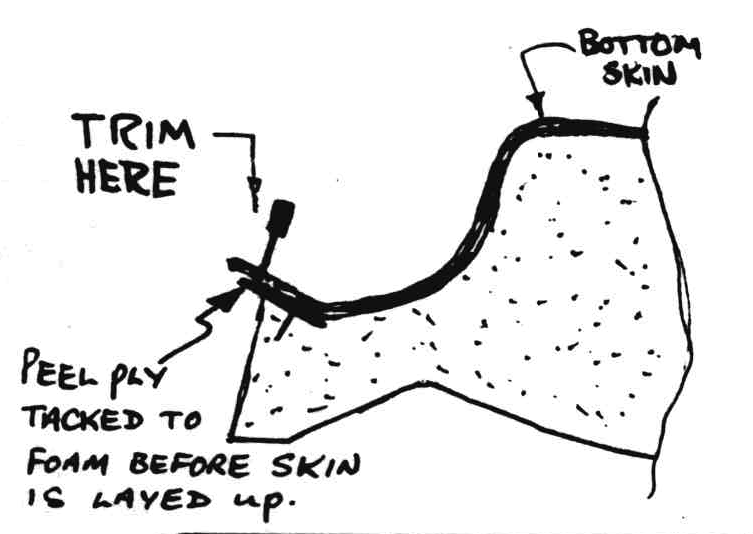 BOTTOM
SKIN
TRIM
HERE
PEEL PLY
TACKED TO
FOAM BEFORE SKIN
IS LAYED up.